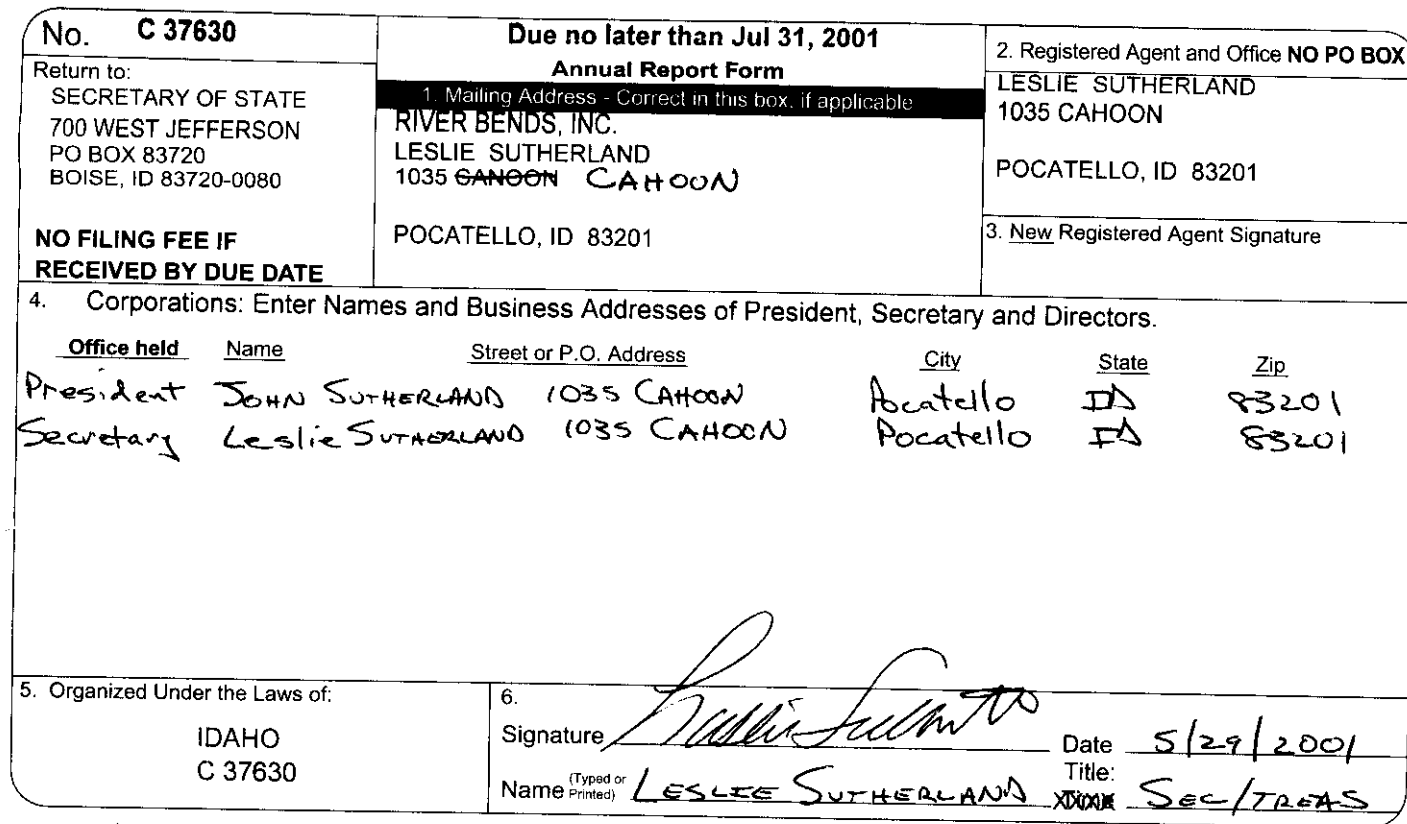 No. C 37630
Return to:
SECRETARY OF STATE
700 WEST JEFFERSON
PO BOX 83720
BOISE, ID 83720-0080
NO FILING FEE IF
RECEIVED BY DUE DATE
Due no later than Jul 31, 2001
Annual Report Form
1. Mailing Address - Correct in this box, if applicable
RIVER BENDS, INC.
LESLIE SUTHERLAND
1035 CANOON CAHOON
POCATELLO, ID 83201
2. Registered Agent and Office NO PO BOX
LESLIE SUTHERLAND
1035 CAHOON
POCATELLO, ID 83201
3. New Registered Agent Signature
4. Corporations: Enter Names and Business Addresses of President, Secretary and Directors.
Office held Name Street or P.O. Address City State Zip
President JOHN SUTHERLAND 1035 CAHOON Pocatello ID 83201
Secretary Leslie SUTHERLAND 1035 CAHOON Pocatello ID 83201
5. Organized Under the Laws of:
IDAHO
C 37630
6.
Signature Date 5/29/2001
Name (Typed or Printed) LESLIE SUTHERLAND Title: SEC/TREAS